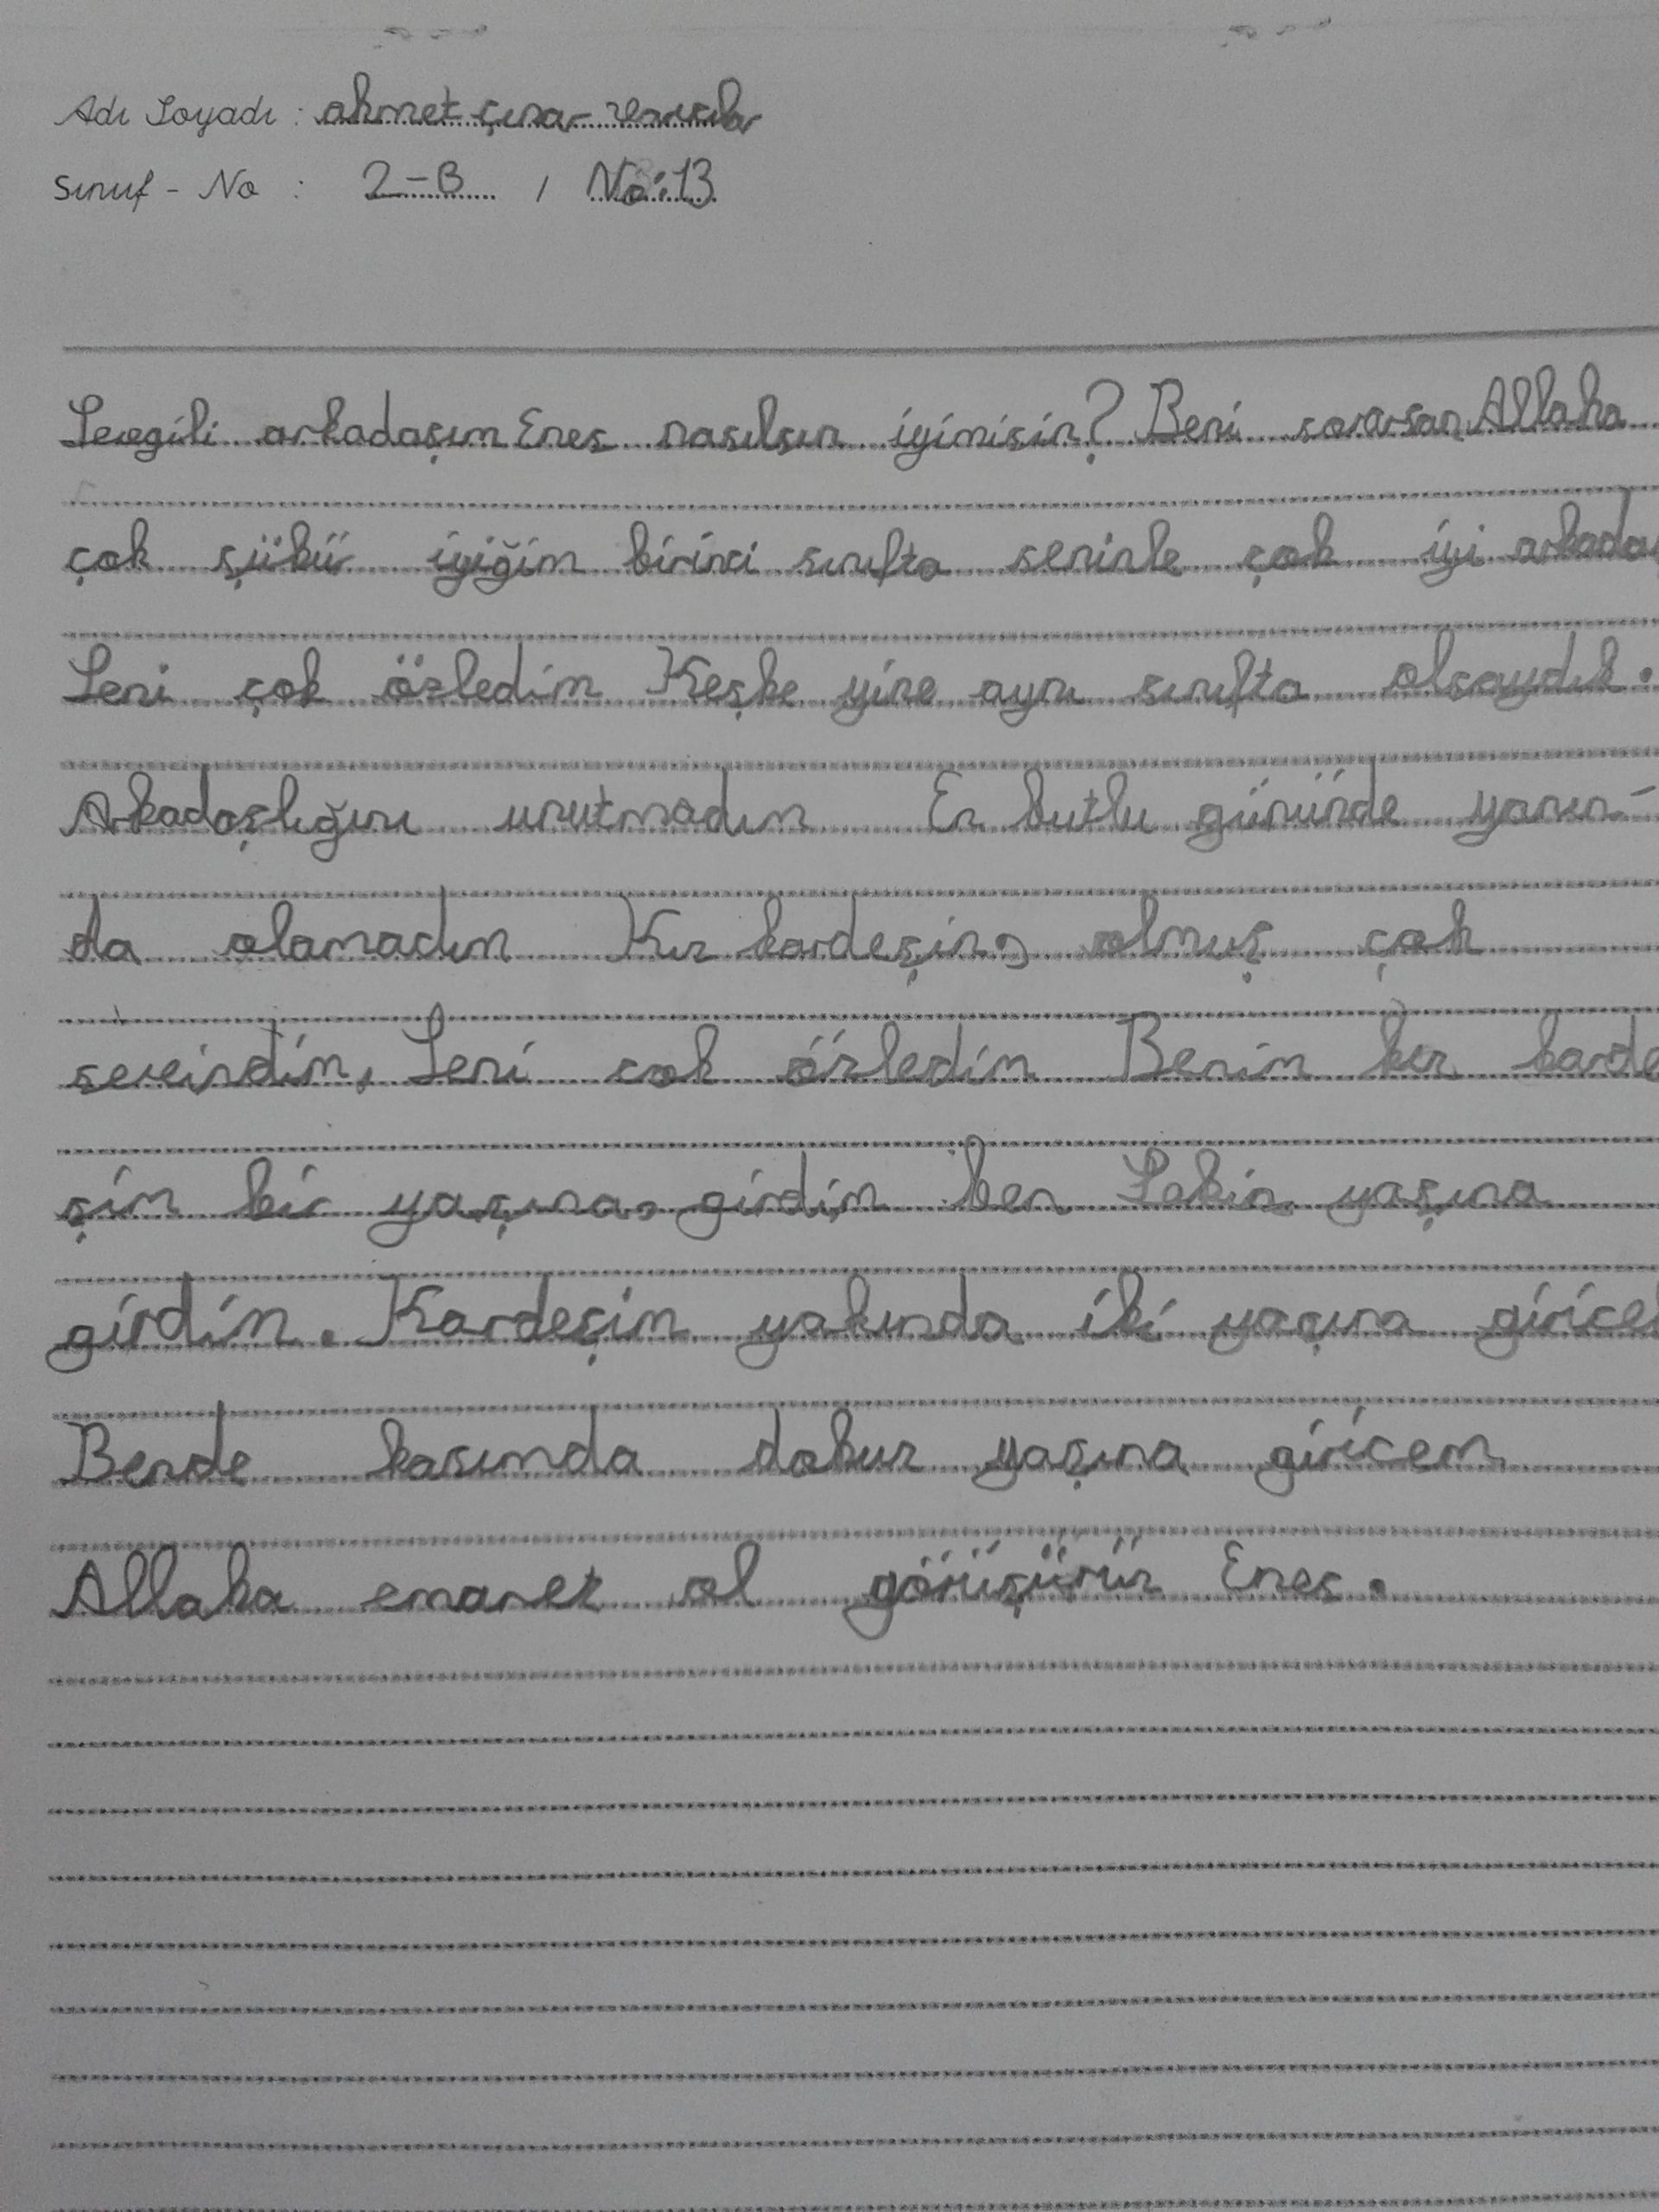 Adı Soyadı : ahmet çınar
Sınıf - No : 2-B / No:13
Sevgili arkadaşım Enes nasılsın iyimisin? Beni sorarsan Allaha
çok şükür iyiğim birinci sınıfta seninle çok iyi arkadaş
Seni çok özledim Keşke yine aynı sınıfta olsaydık.
Arkadaşlığını unutmadım En kutlu gününde yanın-
da olamadım Kız kardeşin olmuş çok
sevindim, Seni cok özledim Benim kız karde
şim bir yaşına girdim ben Sekiz yaşına
girdim. Kardeşim yakında iki yaşına giricek
Bende kasımda dokuz yaşına giricem
Allaha emanet ol görüşürüz Enes.